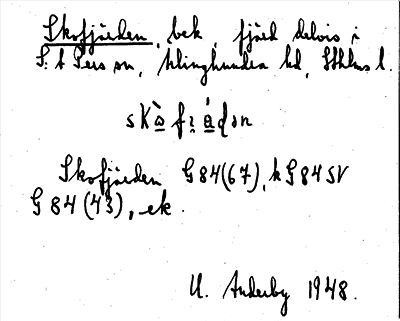 Skofjärden, bek, fjärd delvis i
S:t Pers sn, Klinghundra hd, Sthlms l.
skò̱fɪá̱dɘn
Skofjärden G84(67), k G84SV
G84(43), ek.
U. Anderby 1948.